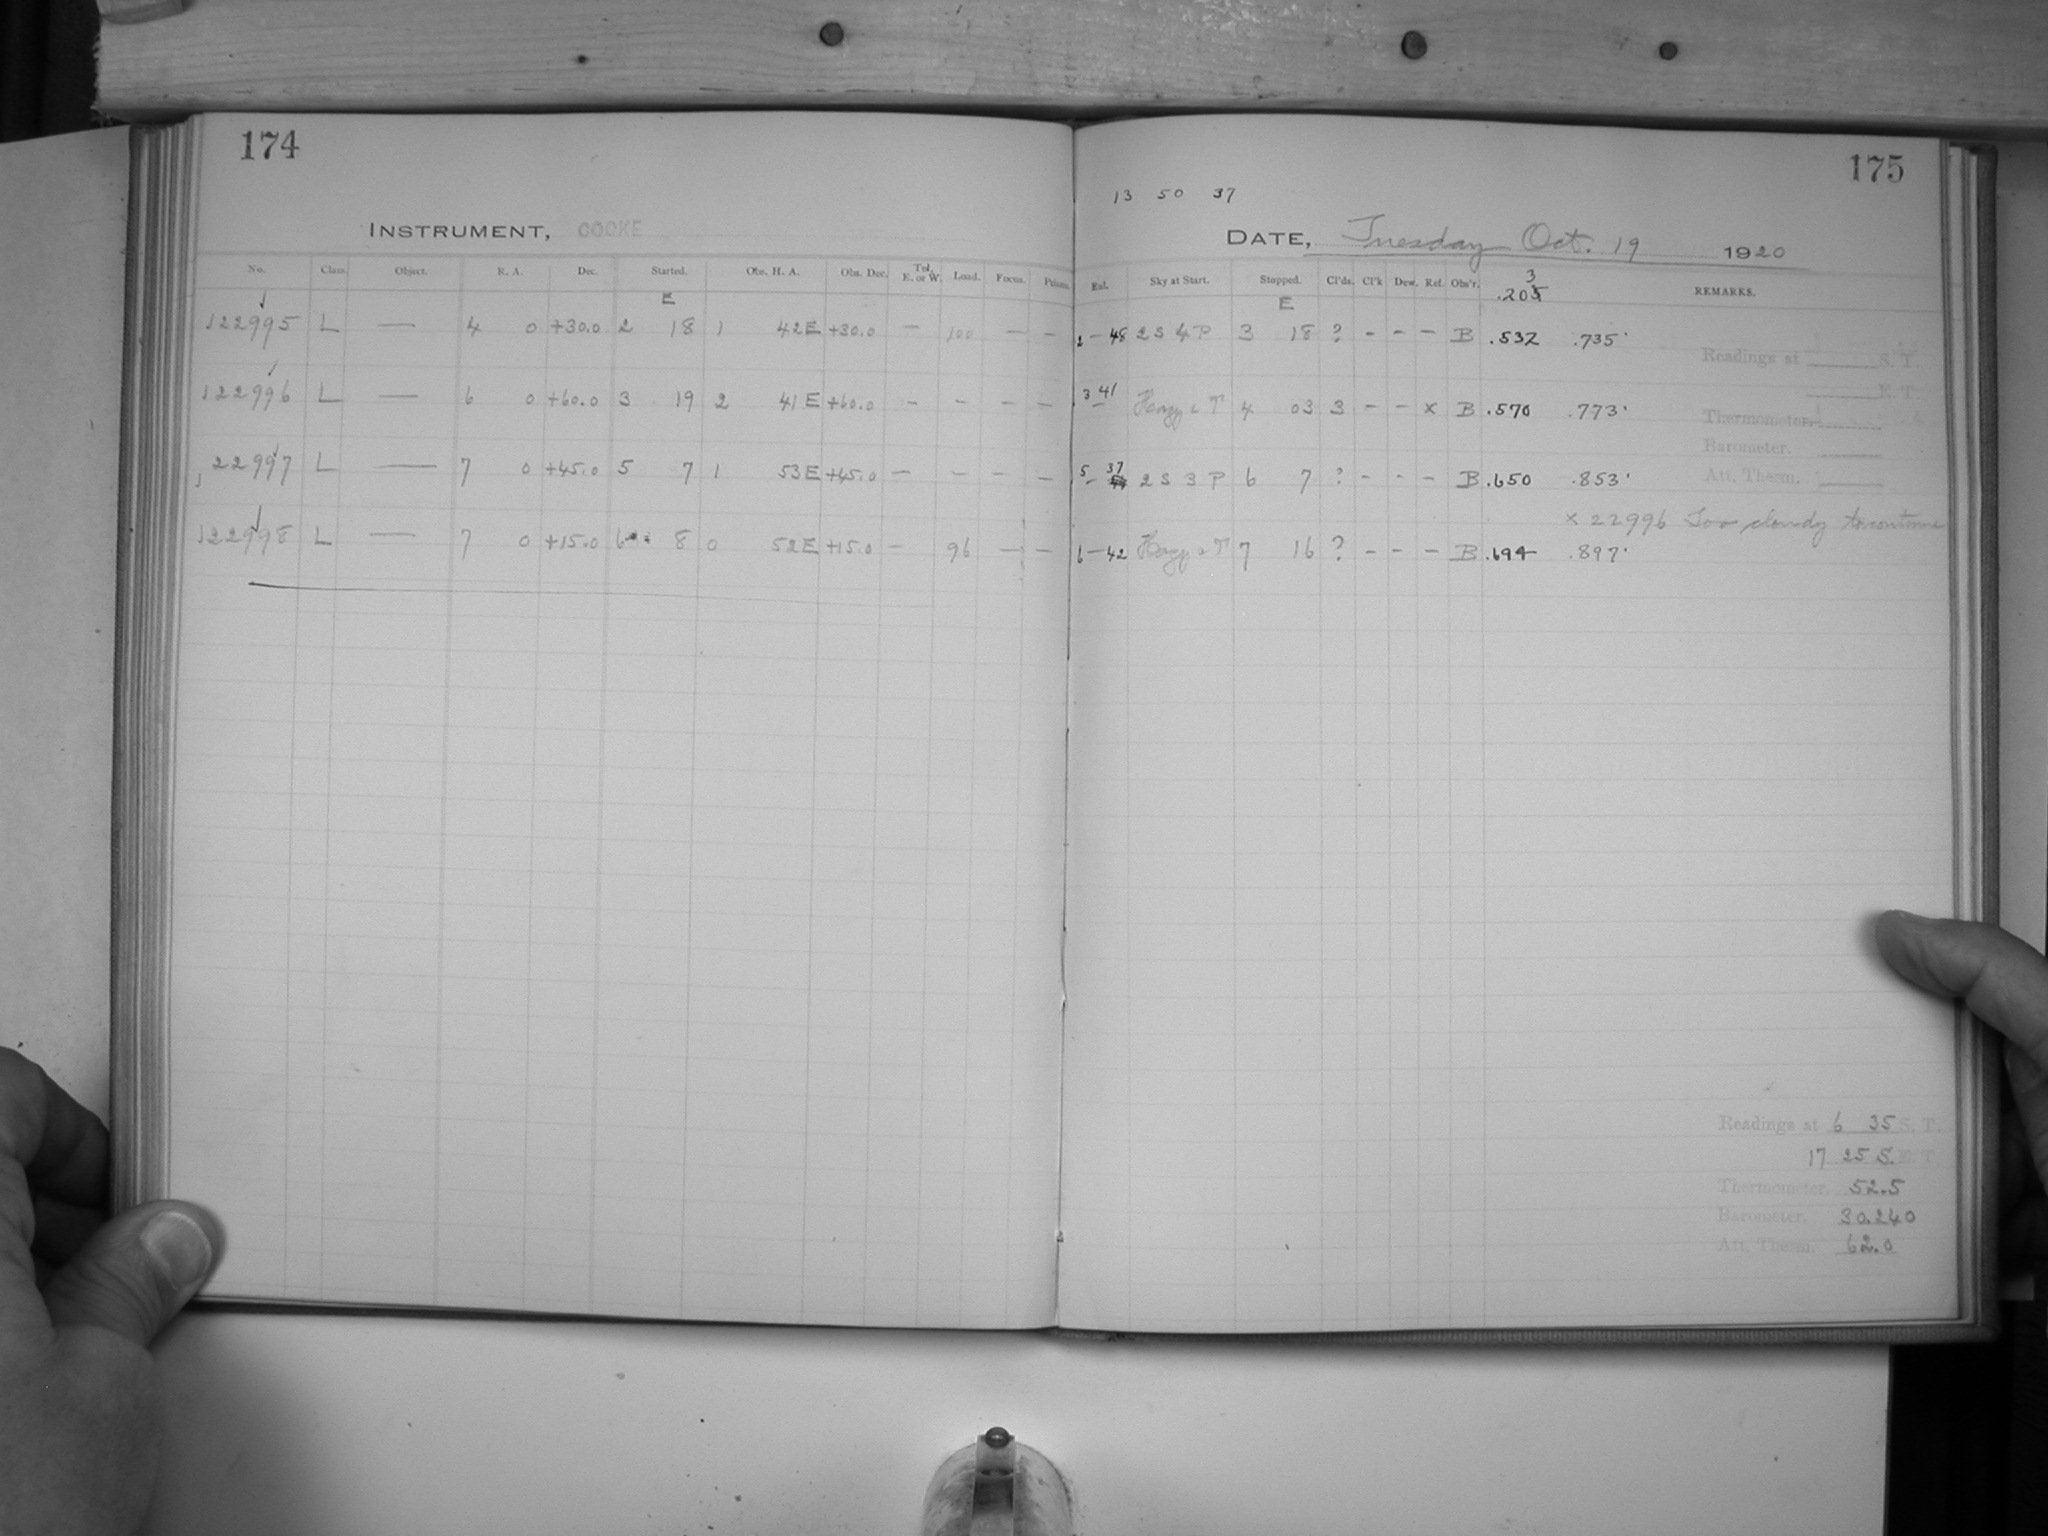 174
INSTRUMENT, COOKE
No. Class. Object. R. A. Dec. Started. Obs. H. A. Obs. Dec. Tel. E. or W. Load. Focus.
E
122995 L — 4 0 +30.0 2 18 1 42E +30.0 — 100 — —
122996 L — 6 0 +60.0 3 19 2 41E +60.0 — — — —
122997 L — 7 0 +45.0 5 7 1 53E +45.0 — — — —
122998 L — 7 0 +15.0 6 8 0 52E +15.0 — 96 — —
175
13 50 37
DATE, Tuesday Oct. 19 1920
Sky at Start. Stopped. Cl'ds. Cl'k Dew. Ref. Obs'r. REMARKS.
3
.205
E
2—48 2 S 4 P 3 18 ? - - - B .532 .735
Readings at S. T.
E. T.
3 41 Hazy & T 4 03 3 - - x B .570 .773
Thermometer.
Barometer.
5 37 2 S 3 P 6 7 ? - - - B .650 .853
Att. Therm.
x 22996 Too cloudy to continue
6—42 Hazy & T 7 16 ? - - - B .694 .897
Readings at 6 35 S. T.
17 25 S.
Thermometer. 52.5
Barometer. 30.240
Att. Therm. 62.0